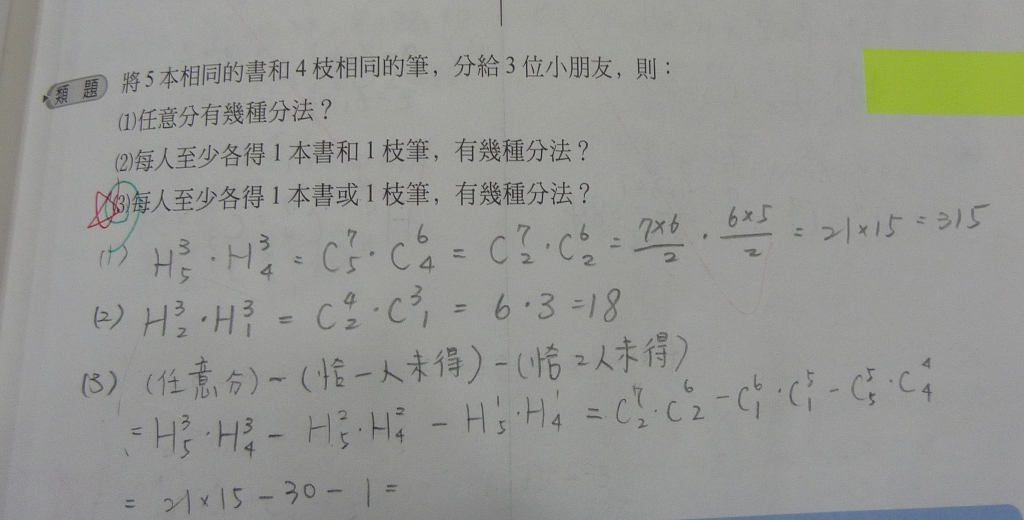 類題 將5本相同的書和4枝相同的筆，分給3位小朋友，則：
(1)任意分有幾種分法？
(2)每人至少各得1本書和1枝筆，有幾種分法？
(3)每人至少各得1本書或1枝筆，有幾種分法？
(1) H³₅·H³₄ = C⁷₅·C⁶₄ = C⁷₂·C⁶₂ = 7×6/2 · 6×5/2 = 21×15 = 315
(2) H³₂·H³₁ = C⁴₂·C³₁ = 6·3 = 18
(3) (任意分) - (恰一人未得) - (恰2人未得)
= H³₅·H³₄ - H²₅·H²₄ - H¹₅·H¹₄ = C⁷₂·C⁶₂ - C⁶₁·C⁵₁ - C⁵₅·C⁴₄
= 21×15 - 30 - 1 =